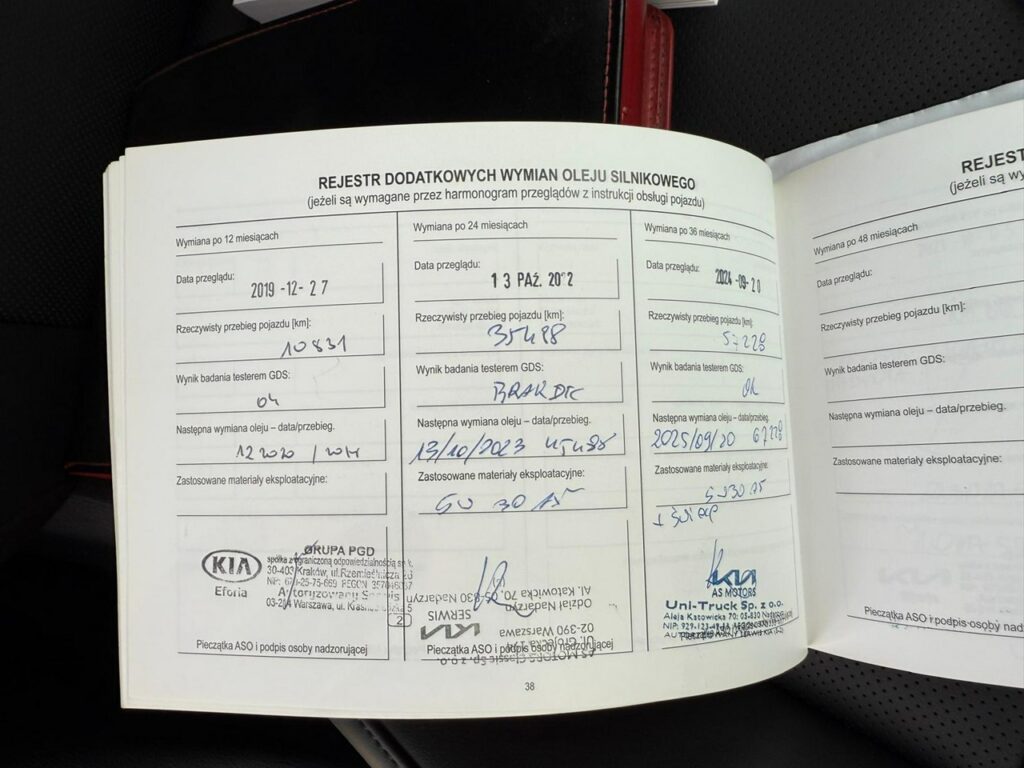 REJESTR DODATKOWYCH WYMIAN OLEJU SILNIKOWEGO
(jeżeli są wymagane przez harmonogram przeglądów z instrukcji obsługi pojazdu)
Wymiana po 12 miesiącach
Data przeglądu:
2019-12-27
Rzeczywisty przebieg pojazdu [km]:
10831
Wynik badania testerem GDS:
ok
Następna wymiana oleju – data/przebieg.
Zastosowane materiały eksploatacyjne:
KIA
Eforia
GRUPA PGD
spółka z ograniczoną odpowiedzialnością sp. k.
30-403 Kraków, ul. Rzemieślnicza
Autoryzowany Serwis
Warszawa, ul.
2
Pieczątka ASO i podpis osoby nadzorującej
Wymiana po 24 miesiącach
Data przeglądu:
13 PAŹ. 2022
Rzeczywisty przebieg pojazdu [km]:
35488
Wynik badania testerem GDS:
BRAK DTC
Następna wymiana oleju – data/przebieg.
13/10/2023
Zastosowane materiały eksploatacyjne:
5W 30 A5
Al. Katowicka 70, 05-830 Nadarzyn
Odział Nadarzyn
SERWIS
KIA
02-390 Warszawa
Ul. Grójecka
AS MOTORS Classic Sp. z o.o.
Pieczątka ASO i podpis osoby nadzorującej
Wymiana po 36 miesiącach
Data przeglądu:
2024-09-20
Rzeczywisty przebieg pojazdu [km]:
57228
Wynik badania testerem GDS:
OK
Następna wymiana oleju – data/przebieg.
2025/09/20 67228
Zastosowane materiały eksploatacyjne:
5W30 A5
KIA
AS MOTORS
Uni-Truck Sp. z o.o.
Aleja Katowicka 70; 05-830 Nadarzyn
38
REJEST
(jeżeli są wy
Wymiana po 48 miesiącach
Data przeglądu:
Rzeczywisty przebieg pojazdu [km]:
Wynik badania testerem GDS:
Następna wymiana oleju – data/przebieg.
Zastosowane materiały eksploatacyjne:
Pieczątka ASO i podpis osoby nadzor